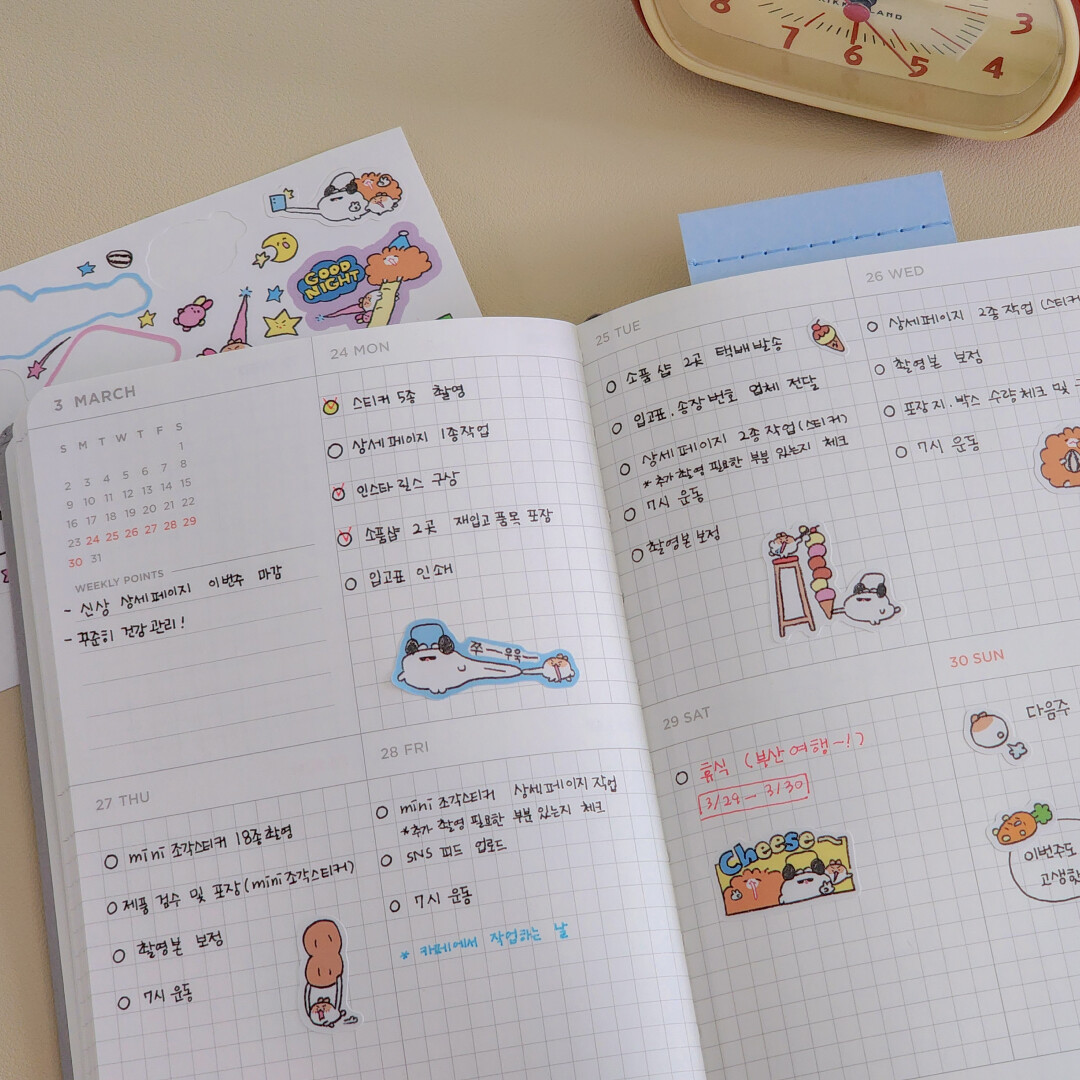 8
7
6
5
4
3
LAND
GOOD
NIGHT
3 MARCH
S M T W T F S
1
2 3 4 5 6 7 8
9 10 11 12 13 14 15
16 17 18 19 20 21 22
23 24 25 26 27 28 29
30 31
WEEKLY POINTS
- 신상 상세페이지 이번주 마감
- 꾸준히 건강관리!
24 MON
스티커 5종 촬영
상세페이지 1종작업
인스타 릴스 구상
소품샵 2곳 재입고 품목 포장
입고표 인쇄
쭈ㅡ우욱ㅡ
25 TUE
소품샵 2곳 택배발송
입고표. 송장번호 업체 전달
상세페이지 2종작업(스티커)
*추가촬영 필요한 부분 있는지 체크
7시 운동
촬영본 보정
26 WED
상세페이지 2종작업 (스티커
촬영본 보정
포장지. 박스 수량체크 및
7시 운동
27 THU
mini 조각스티커 18종촬영
제품 검수 및 포장(mini조각스티커)
촬영본 보정
7시 운동
28 FRI
mini 조각스티커 상세페이지작업
*추가 촬영 필요한 부분 있는지 체크
SNS 피드 업로드
7시 운동
* 카페에서 작업하는 날
29 SAT
휴식 (부산여행~!)
3/29 - 3/30
Cheese~
30 SUN
다음주
이번주도
고생했